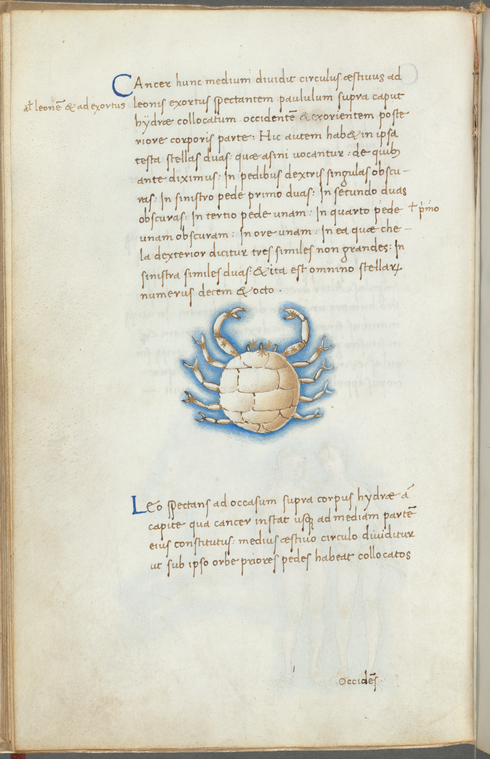 CAncer hunc medium diuidit circulus æstiuus ad
at leonē & ad exortus
leonis exortus spectantem paululum supra caput
hydræ collocatum occidentē & exorientem poste
riore corporis parte: Hic autem hab& in ipsa
testa stellas duas: quæ asini uocantur: de quib;
ante diximus: In pedibus dextris singulas obscu-
ras: In sinistro pede primo duas: In secundo duas
obscuras: In tertio pede unam: In quarto pede
† pmo
unam obscuram: In ore unam: In ea quæ che-
la dexterior dicitur tres similes non grandes: In
sinistra similes duas: & ita est omnino stellarꝝ
numerus decem & octo.
LEo spectans ad occasum supra corpus hydræ á
capite qua cancer instat usq; ad mediam partē
eius constitutus: medius æstiuo circulo diuiditur
ut sub ipso orbe priores pedes habeat collocatos
Occidēs